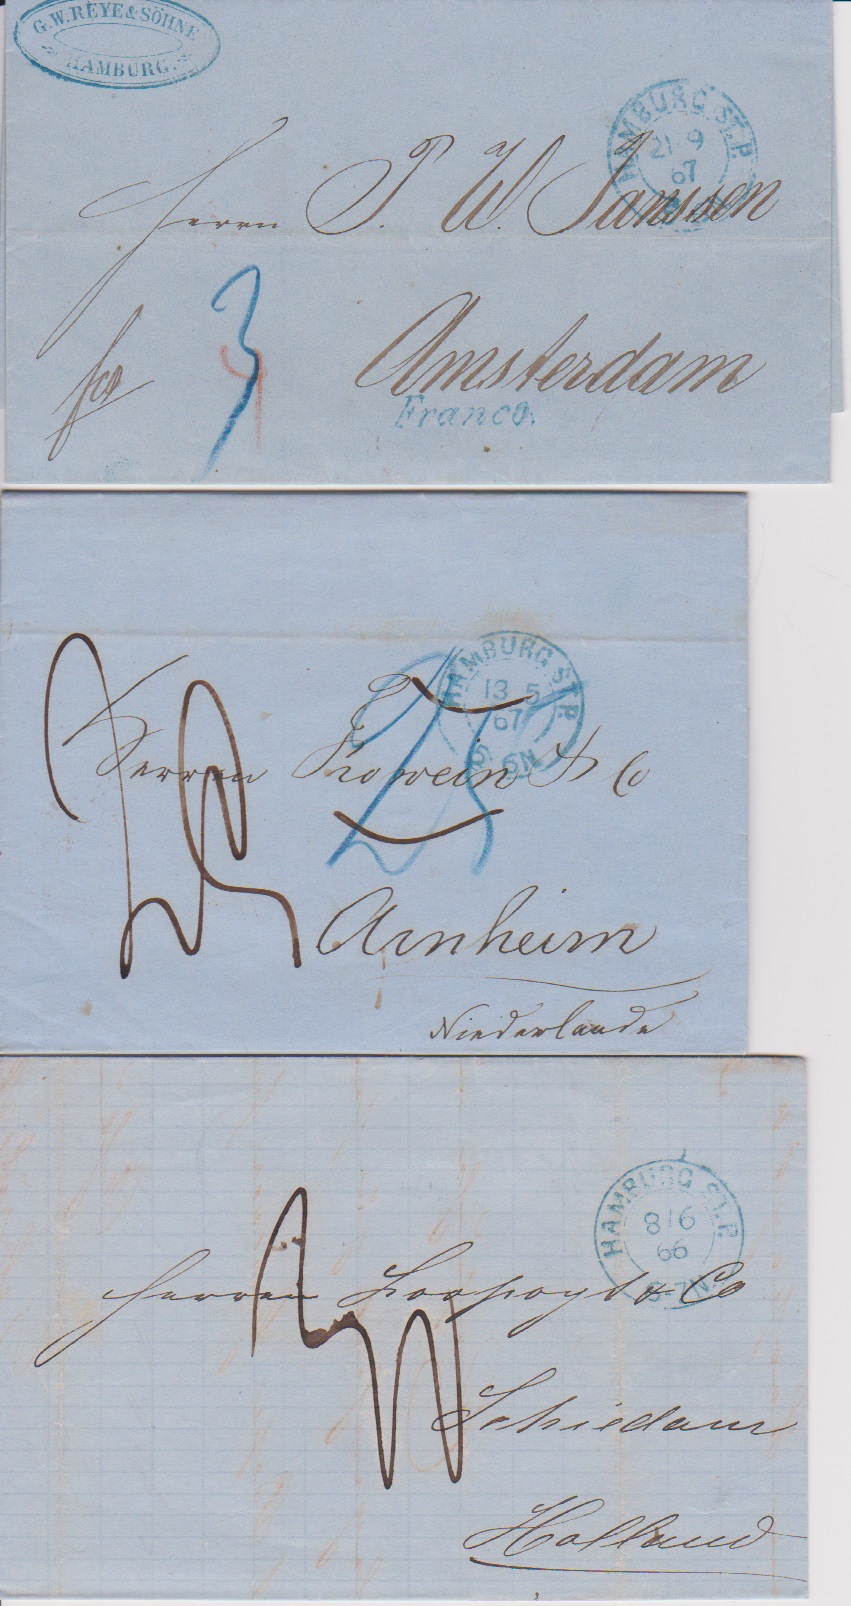 G.W.REYE & SÖHNE
HAMBURG.
HAMBURG ST.P.
21 9
67
Herrn J. W. Janssen
fco
3
Amsterdam
Franco.
HAMBURG ST.P.
13 5
67
5-6N
Herren & Co
Arnheim
Niederlande
HAMBURG ST.P.
8 6
66
6-7N
Herren & Co
Schiedam
Holland